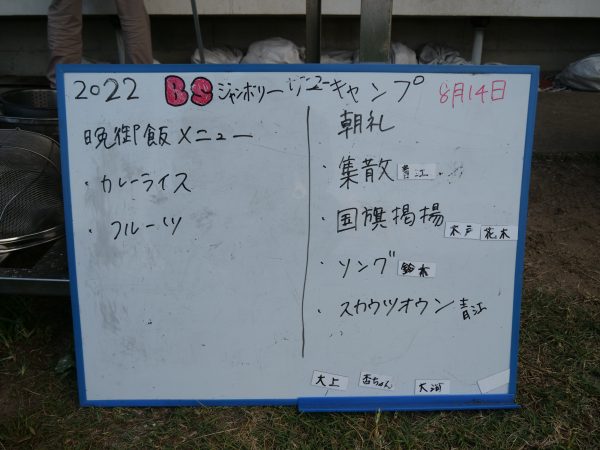 2022 BSジャンボリーデューキャンプ 8月14日
晩御飯メニュー
・カレーライス
・フルーツ
朝礼
・集散 青江
・国旗掲揚 木戸 花木
・ソング 鈴木
・スカウツオウン 青江
大上 杏ちゃん 大河